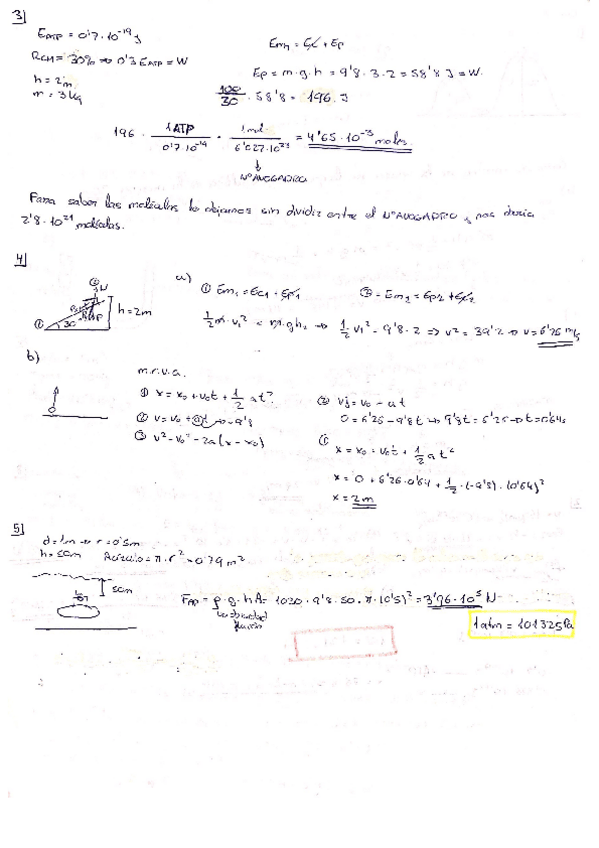 3)
E_ATP = 0'7·10^-19 J
R_CM = 30% → 0'3 E_ATP = W
h = 2m
m = 3kg
Em = Ec + Ep
Ep = m·g·h = 9'8·3·2 = 58'8 J = W.
100/30 · 58'8 = 196 J
196 · 1 ATP / 0'7·10^-19 · 1 mol / 6'027·10^23 = 4'65·10^-3 moles.
↓
Nº AVOGADRO
Para saber las moléculas lo dejamos sin dividir entre el Nº AVOGADRO y nos daría
2'8·10^21 moléculas.
4)
a)
① Em1 = Ec1 + Ep1
② = Em2 = Ep2 + Ec2
h = 2m
30
1/2 m·v1^2 = m·g·h2 → 1/2 v1^2 = 9'8·2 => v^2 = 39'2 → v = 6'26 m/s
b)
m.r.u.a.
① x = x0 + v0t + 1/2 at^2
② v = v0 + at → -9'8
③ v^2 - v0^2 = 2a(x - x0)
② vf = v0 - at
0 = 6'26 - 9'8t → 9'8t = 6'26 → t = 0'64s
①
x = x0 + v0t + 1/2 at^2
x = 0 + 6'26·0'64 + 1/2·(-9'8)·(0'64)^2
x = 2m
5)
d = 1m → r = 0'5m
h = 50m
A círculo = π·r^2 = 0'79 m^2
50m
= ρ·g·h·A = 1030·9'8·50·π·(0'5)^2 = 3'96·10^5 N
densidad
1 atm = 101325 Pa